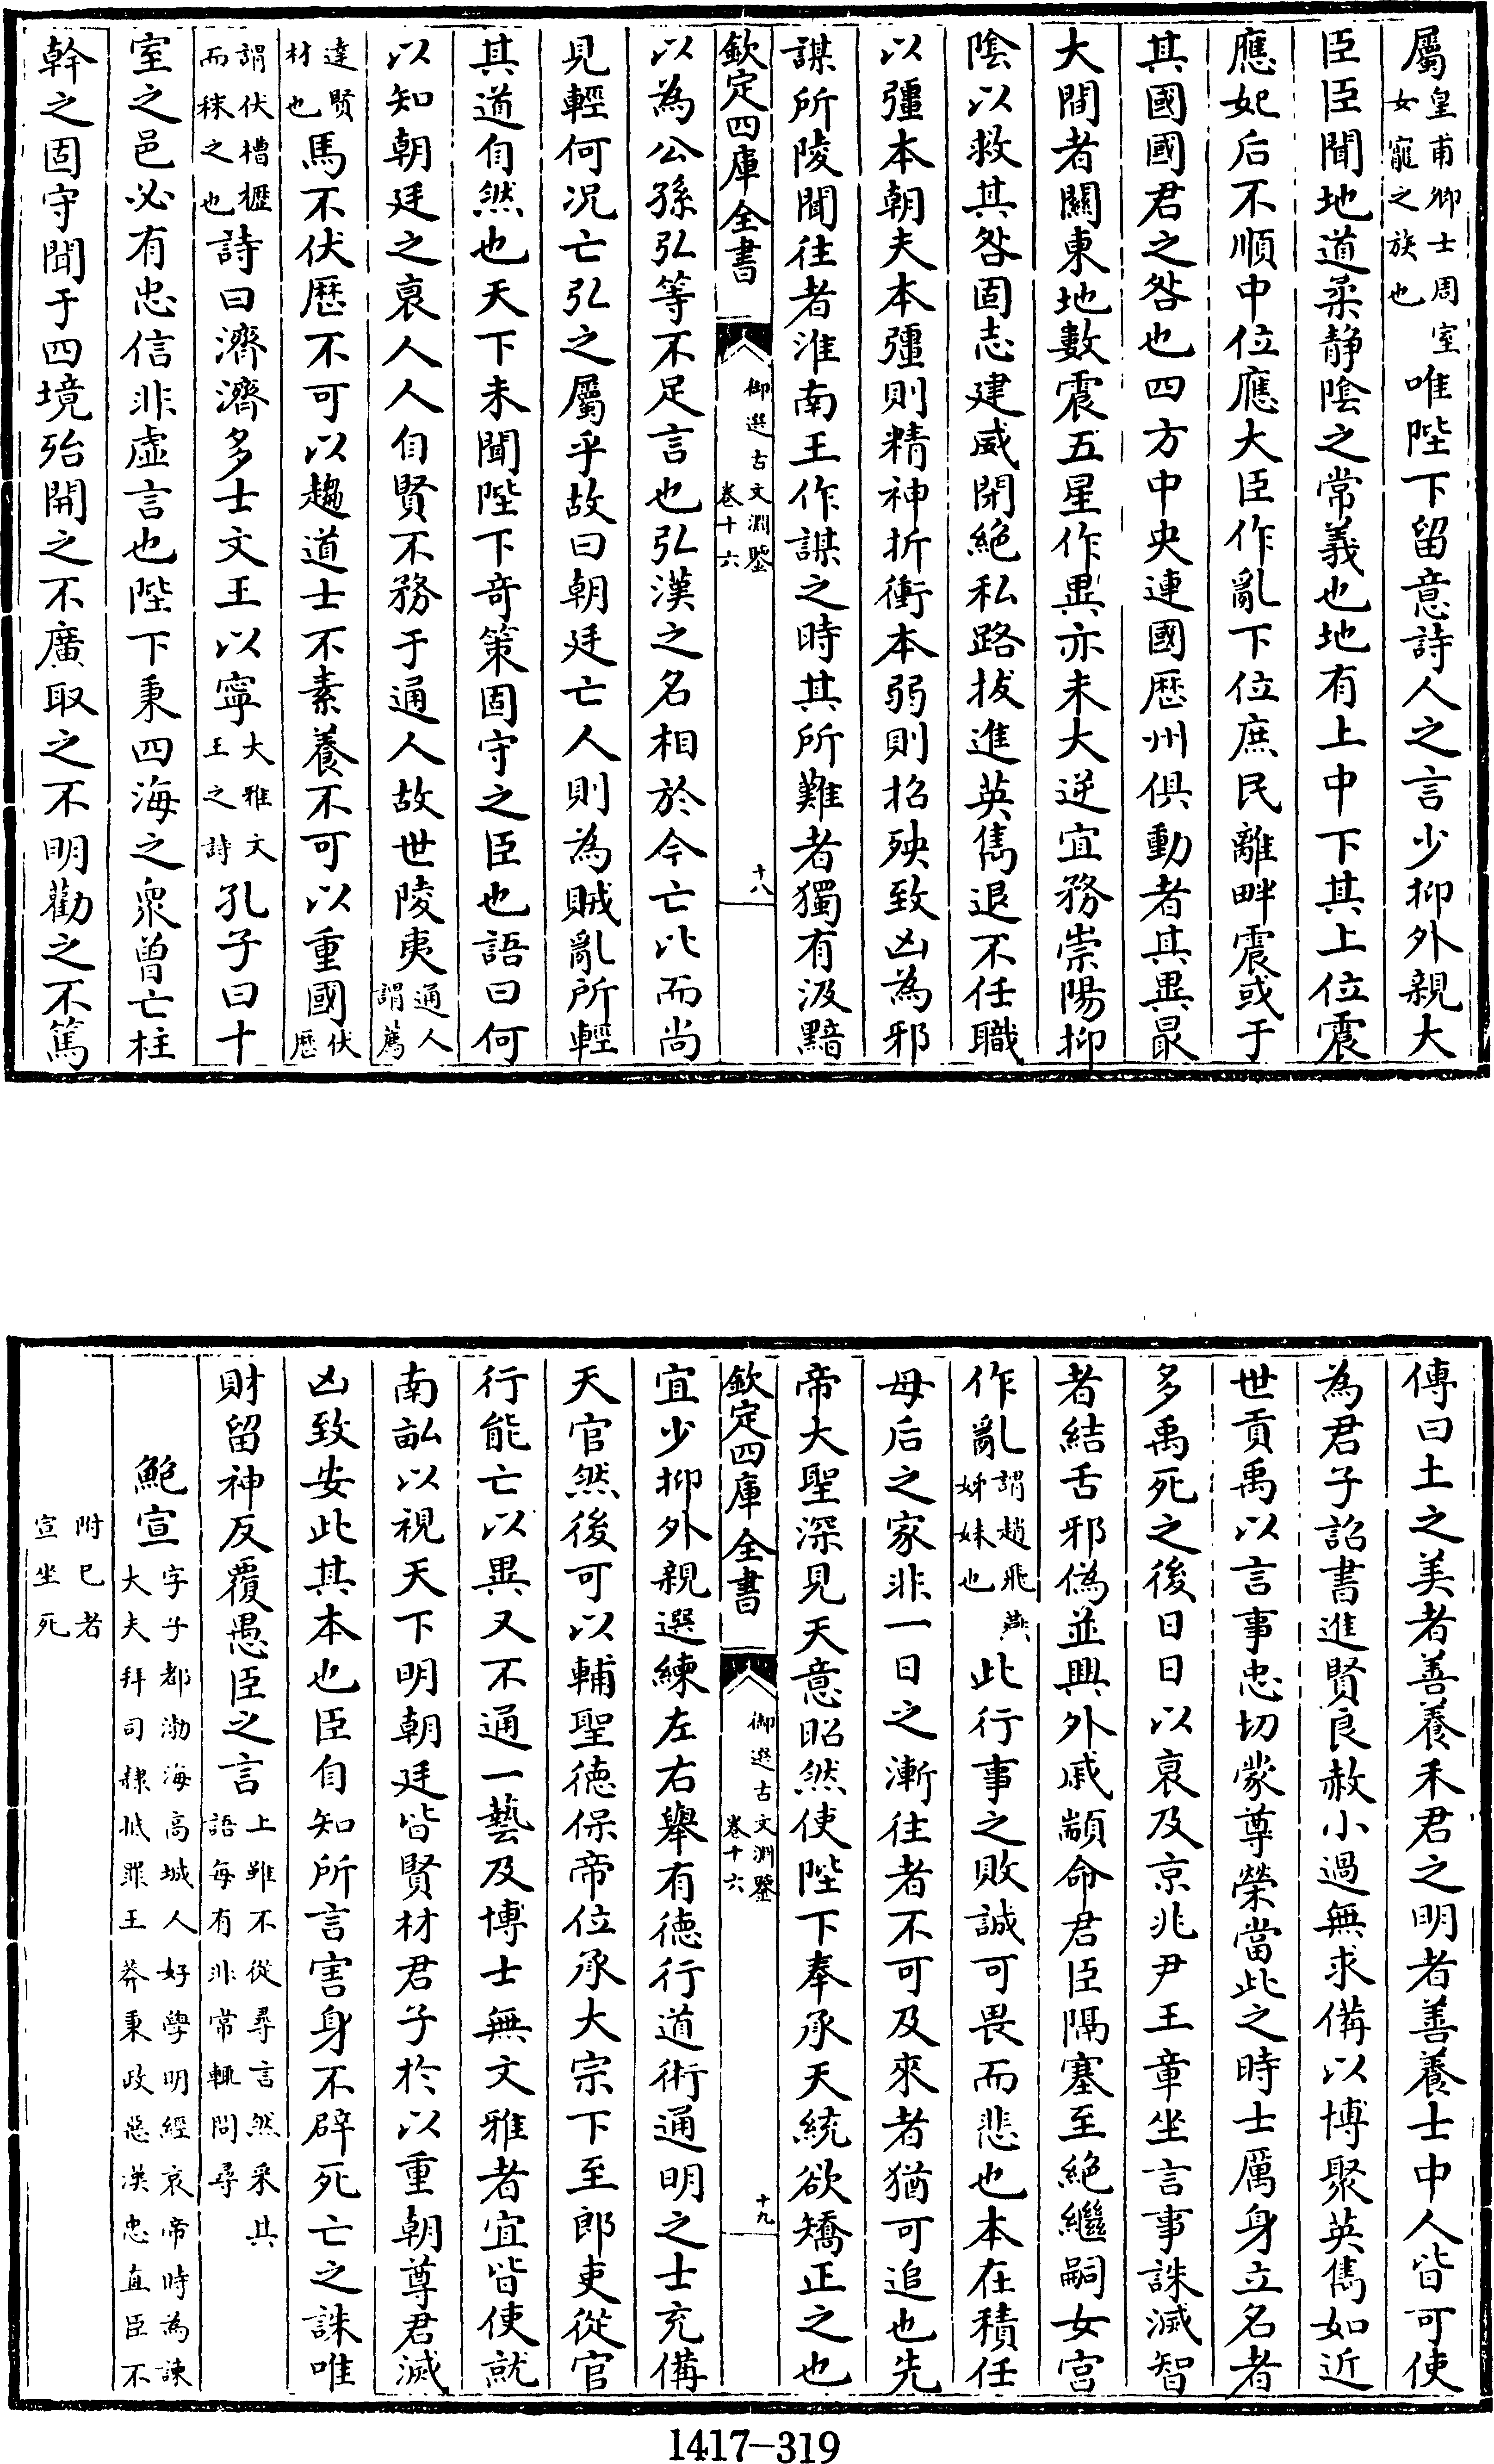 屬皇甫卿士周室女寵之族也唯陛下留意詩人之言少抑外親大
臣臣聞地道柔靜陰之常義也地有上中下其上位震
應妃后不順中位應大臣作亂下位庶民離畔震或于
其國國君之咎也四方中央連國歷州俱動者其異最
大間者關東地數震五星作異亦未大逆宜務崇陽抑
陰以救其咎固志建威閉絕私路拔進英雋退不任職
以彊本朝夫本彊則精神折衝本弱則招殃致凶為邪
謀所陵聞往者淮南王作謀之時其所難者獨有汲黯
欽定四庫全書 御選古文淵鑒 卷十六 十八
以為公孫弘等不足言也弘漢之名相於今亡比而尚
見輕何况亡弘之屬乎故曰朝廷亡人則為賊亂所輕
其道自然也天下未聞陛下奇策固守之臣也語曰何
以知朝廷之衰人人自賢不務于通人故世陵夷通人謂薦
達賢材也馬不伏歷不可以趨道士不素養不可以重國伏歷
謂伏槽櫪而秣之也詩曰濟濟多士文王以寧大雅文王之詩孔子曰十
室之邑必有忠信非虛言也陛下秉四海之衆曾亡柱
幹之固守聞于四境殆開之不廣取之不明勸之不篤
傳曰土之美者善養禾君之明者善養士中人皆可使
為君子詔書進賢良赦小過無求備以博聚英雋如近
世貢禹以言事忠切蒙尊榮當此之時士厲身立名者
多禹死之後日日以衰及京兆尹王章坐言事誅滅智
者結舌邪偽並興外戚顓命君臣隔塞至絕繼嗣女宫
作亂謂趙飛燕姊妹也此行事之敗誠可畏而悲也本在積任
母后之家非一日之漸往者不可及來者猶可追也先
帝大聖深見天意昭然使陛下奉承天統欲矯正之也
欽定四庫全書 御選古文淵鑒 卷十六 十九
宜少抑外親選練左右舉有德行道術通明之士充備
天官然後可以輔聖德保帝位承大宗下至郎吏從官
行能亡以異又不通一藝及博士無文雅者宜皆使就
南畝以視天下明朝廷皆賢材君子於以重朝尊君滅
凶致安此其本也臣自知所言害身不辟死亡之誅唯
財留神反覆愚臣之言上雖不從尋言然采其語每有非常輒問尋
鮑宣字子都渤海高城人好學明經哀帝時為諫大夫拜司隸抵罪王莽秉政惡漢忠直臣不
附已者宣坐死
1417-319